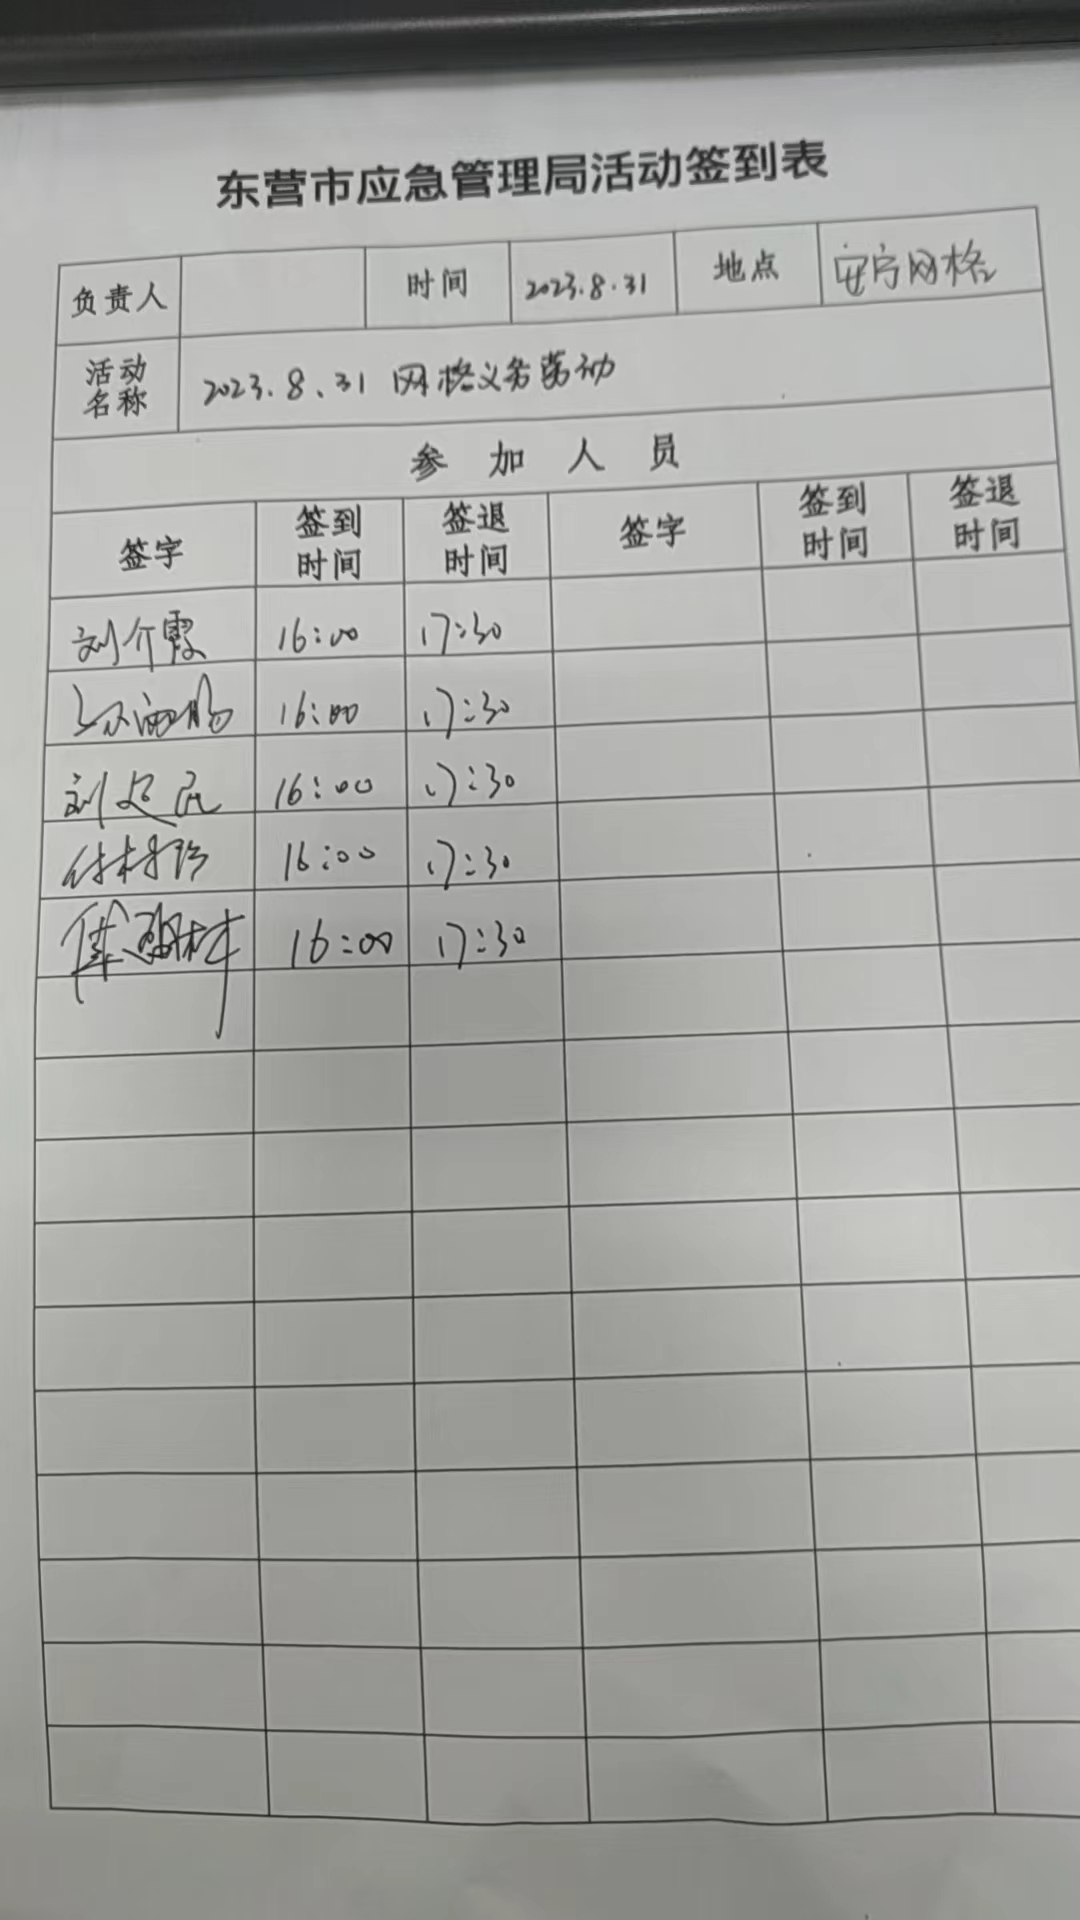 东营市应急管理局活动签到表
负责人 时间 2023.8.31 地点 安宁网格
活动名称 2023.8.31 网格义务劳动
参加人员
签字 签到时间 签退时间 签字 签到时间 签退时间
刘介霞 16:00 17:30
16:00 17:30
刘 民 16:00 17:30
16:00 17:30
16:00 17:30